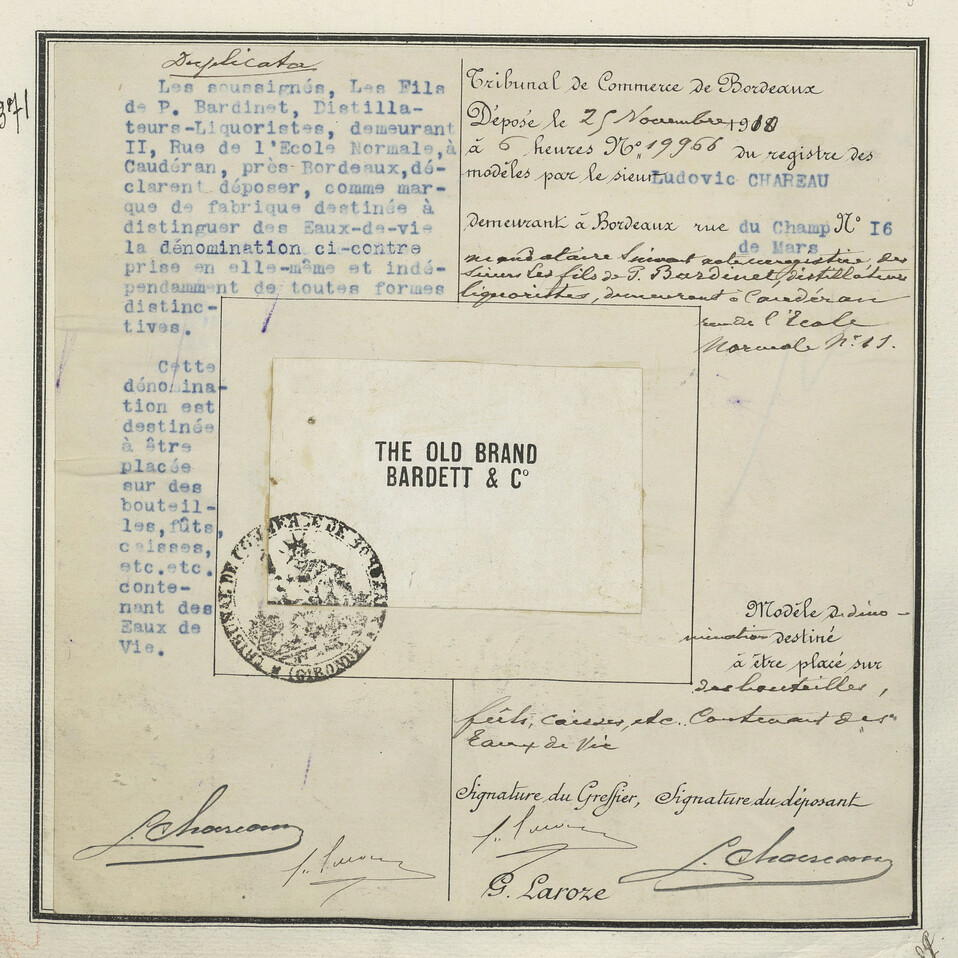 Duplicata
Les soussignés, Les Fils
de P. Bardinet, Distilla-
teurs-Liquoristes, demeurant
II, Rue de l'Ecole Normale, à
Caudéran, près Bordeaux, dé-
clarent déposer, comme mar-
que de fabrique destinée à
distinguer des Eaux-de-vie
la dénomination ci-contre
prise en elle-même et indé-
pendamment de toutes formes
distinc-
tives.
Cette
dénomina-
tion est
destinée
à être
placée
sur des
bouteil-
les, fûts,
caisses,
etc.etc.
conte-
nant des
Eaux de
Vie.
Tribunal de Commerce de Bordeaux
Déposé le 25 Novembre 1918
à 6 heures No. 19966 du registre des
modèles par le sieur Ludovic CHAREAU
demeurant à Bordeaux rue du Champ No I6
de Mars
mandataire suivant acte enregistré, des
sieurs Les fils de P. Bardinet, distillateurs
liquoristes, demeurant à Caudéran
rue de l'École
Normale No. 11.
THE OLD BRAND
BARDETT & Co
TRIBUNAL DE COMMERCE DE BORDEAUX (GIRONDE)
Modèle de déno-
mination destiné
à être placé sur
des bouteilles,
fûts, caisses, etc. Contenant des
Eaux de Vie
Signature du Greffier, Signature du déposant
L. Chareau
L. Chareau
G. Laroze